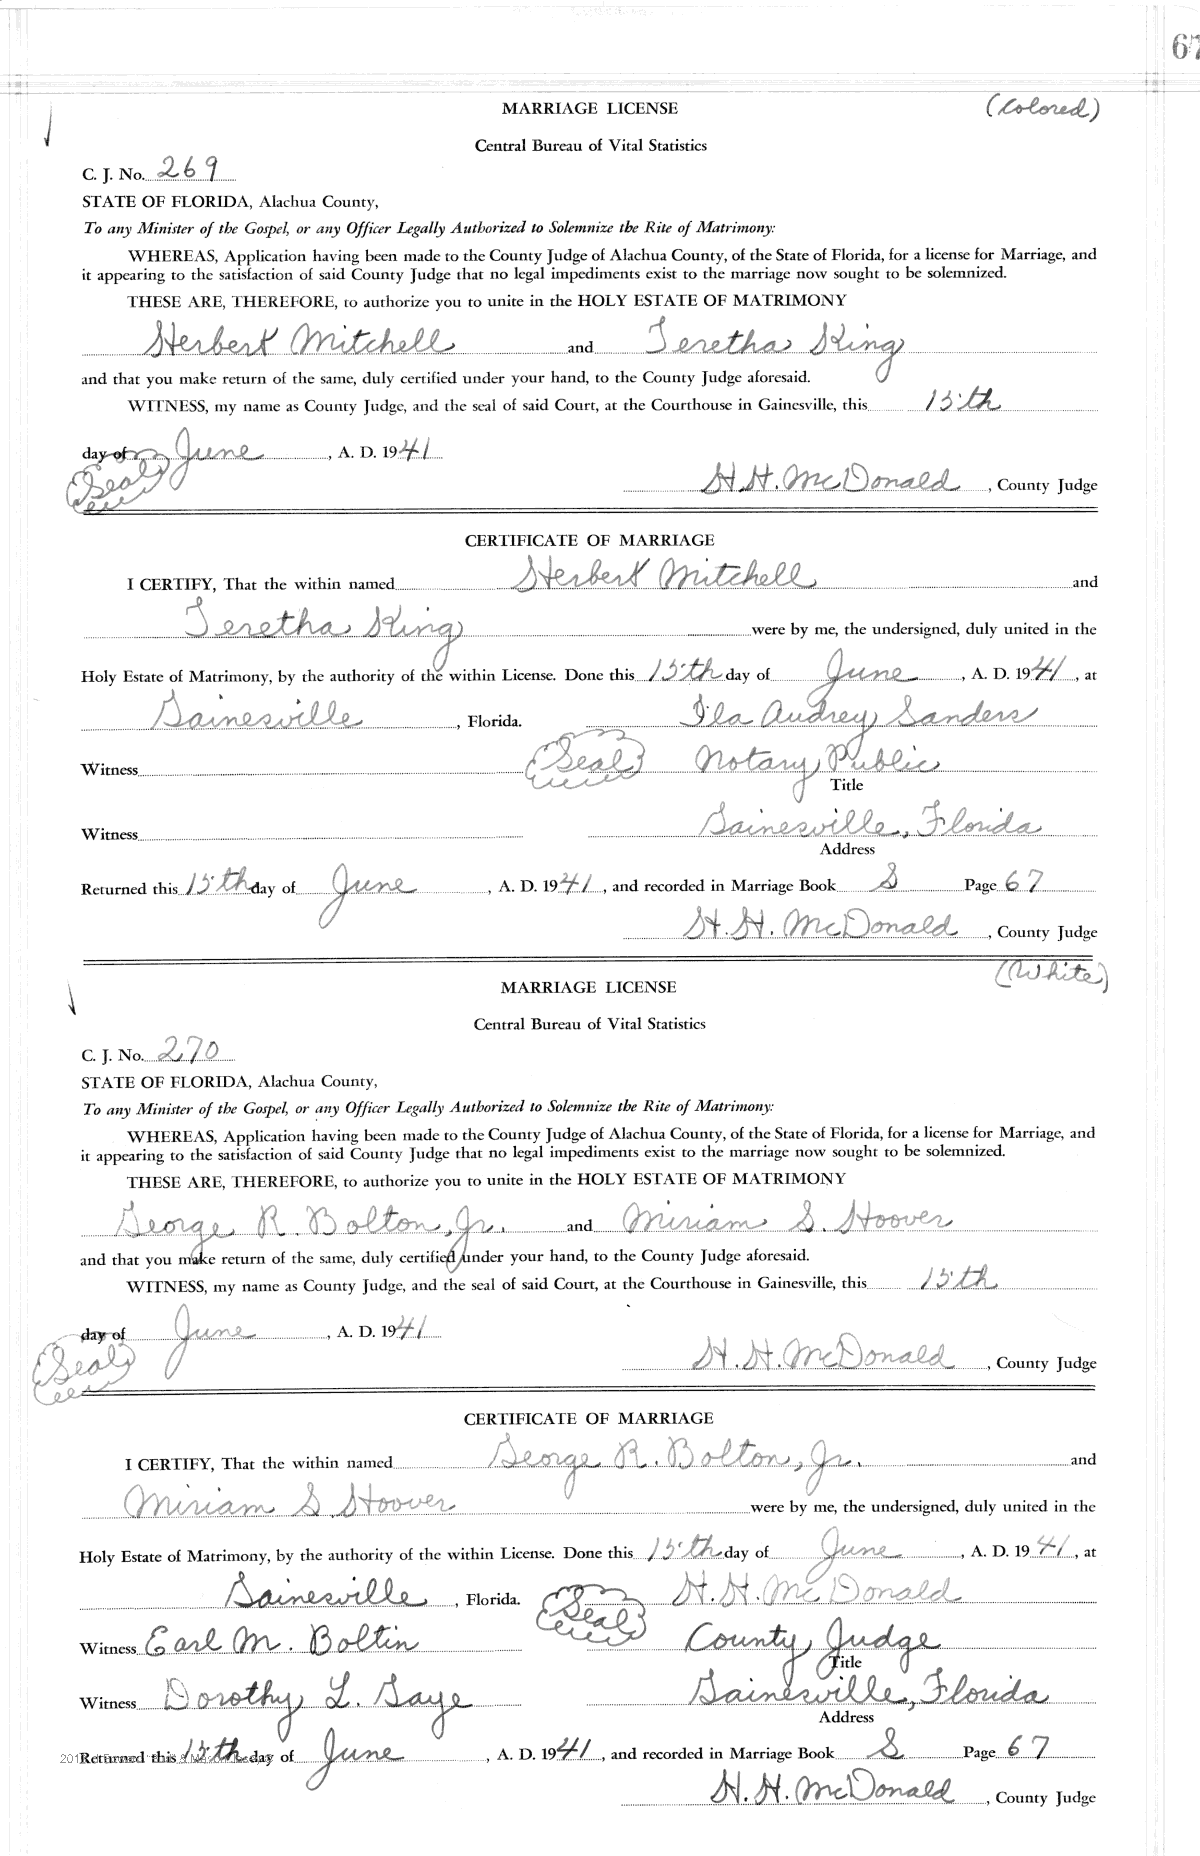 67
MARRIAGE LICENSE (Colored)
Central Bureau of Vital Statistics
C. J. No. 269
STATE OF FLORIDA, Alachua County,
To any Minister of the Gospel, or any Officer Legally Authorized to Solemnize the Rite of Matrimony:
WHEREAS, Application having been made to the County Judge of Alachua County, of the State of Florida, for a license for Marriage, and
it appearing to the satisfaction of said County Judge that no legal impediments exist to the marriage now sought to be solemnized.
THESE ARE, THEREFORE, to authorize you to unite in the HOLY ESTATE OF MATRIMONY
Herbert Mitchell and Teretha King
and that you make return of the same, duly certified under your hand, to the County Judge aforesaid.
WITNESS, my name as County Judge, and the seal of said Court, at the Courthouse in Gainesville, this 15th
day of June, A. D. 1941
Seal H. H. McDonald, County Judge
CERTIFICATE OF MARRIAGE
I CERTIFY, That the within named Herbert Mitchell and
Teretha King were by me, the undersigned, duly united in the
Holy Estate of Matrimony, by the authority of the within License. Done this 15th day of June, A. D. 1941, at
Gainesville, Florida. Ila Audrey Sanders
Witness Seal Notary Public
Title
Witness Gainesville, Florida
Address
Returned this 15th day of June, A. D. 1941, and recorded in Marriage Book S Page 67
H. H. McDonald, County Judge
(White)
MARRIAGE LICENSE
Central Bureau of Vital Statistics
C. J. No. 270
STATE OF FLORIDA, Alachua County,
To any Minister of the Gospel, or any Officer Legally Authorized to Solemnize the Rite of Matrimony:
WHEREAS, Application having been made to the County Judge of Alachua County, of the State of Florida, for a license for Marriage, and
it appearing to the satisfaction of said County Judge that no legal impediments exist to the marriage now sought to be solemnized.
THESE ARE, THEREFORE, to authorize you to unite in the HOLY ESTATE OF MATRIMONY
George R. Bolton, Jr. and Miriam S. Hoover
and that you make return of the same, duly certified under your hand, to the County Judge aforesaid.
WITNESS, my name as County Judge, and the seal of said Court, at the Courthouse in Gainesville, this 15th
day of June, A. D. 1941
Seal H. H. McDonald, County Judge
CERTIFICATE OF MARRIAGE
I CERTIFY, That the within named George R. Bolton, Jr. and
Miriam S. Hoover were by me, the undersigned, duly united in the
Holy Estate of Matrimony, by the authority of the within License. Done this 15th day of June, A. D. 1941, at
Gainesville, Florida. Seal H. H. McDonald
Witness Earl M. Boltin County Judge
Title
Witness Dorothy L. Gaye Gainesville, Florida
Address
Returned this 15th day of June, A. D. 1941, and recorded in Marriage Book S Page 67
H. H. McDonald, County Judge